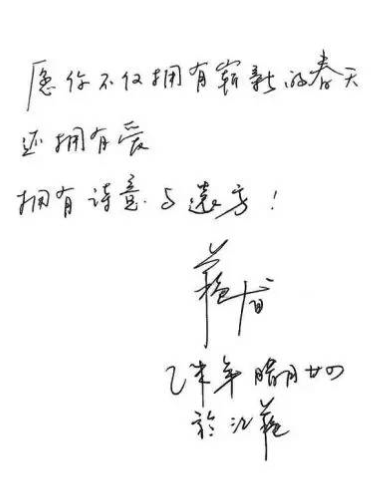 愿你不仅拥有崭新的春天
还拥有爱
拥有诗意与遠方！
乙未年腊月廿四
於江蘓